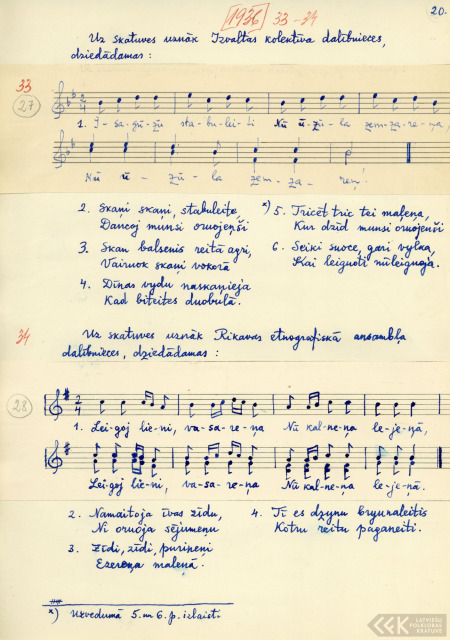 1936 33-34
20.
Uz skatuves uznāk Izvaltas kolektīva dalībnieces,
dziedādamas:
33
27
1. I-sa-gū-žu sta-bu-lei-ti Nū ū-zū-la zem-za-re-ņa,
Nū ū-zū-la zem-za-reņ!
2. Skaņi skaņi, stabuleite,
Dancoj munsi oruojeņši
3. Skan balsenis reitā agri,
Vairuok skaņi vokorā
4. Dīnas vydu naskanieja
Kad biteites duobulā.
x) 5. Tricēt tric tei maleņa,
Kur dzīd munsi oruojeņši
6. Seiki suoce, gari vylka,
Kai leiguoti nūleiguoja.
34
Uz skatuves uznāk Rikavas etnogrāfiskā ansambļa
dalībnieces, dziedādamas:
28
1. Lei-goj lie-ni, va-sa-re-ņa Nū kal-ne-ņa le-je-ņā,
Lei-goj lie-ni, va-sa-re-ņa Nū kal-ne-ņa le-je-ņā.
2. Namaitoja īvas zīdu,
Ni oruoja sējumeņu
3. Zīdi, zīdi, purineņi
Ezereņa maleņā.
4. Tī es dzyņu bryunaleitis
Kotru reitu paganeiti.
x) Uzvedumā 5. un 6. p. izlaisti
LATVIEŠU
FOLKLORAS
KRĀTUVE